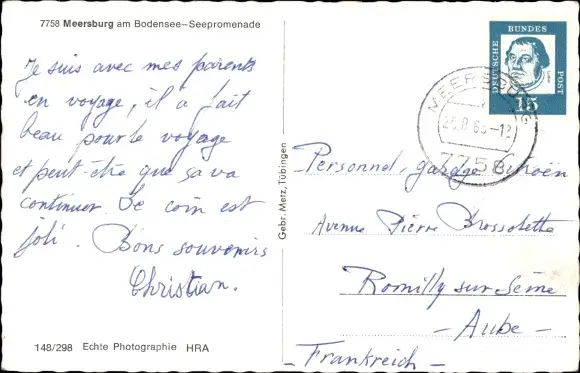 7758 Meersburg am Bodensee—Seepromenade
Je suis avec mes parents
en voyage, il a fait
beau pour le voyage
et peut-être que ça va
continuer. Le coin est
joli. Bons souvenirs
Christian.
148/298 Echte Photographie HRA
Gebr. Metz, Tübingen
DEUTSCHE
BUNDES
POST
Luther
15
MEERSBURG
25.8.65-12
7758
Personnel, garage Citroën
Avenue Pierre Brossolette
Romilly sur Seine
- Aube -
- Frankreich -